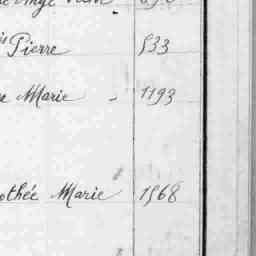 is Pierre 533
e Marie - 1193
othée Marie 1568